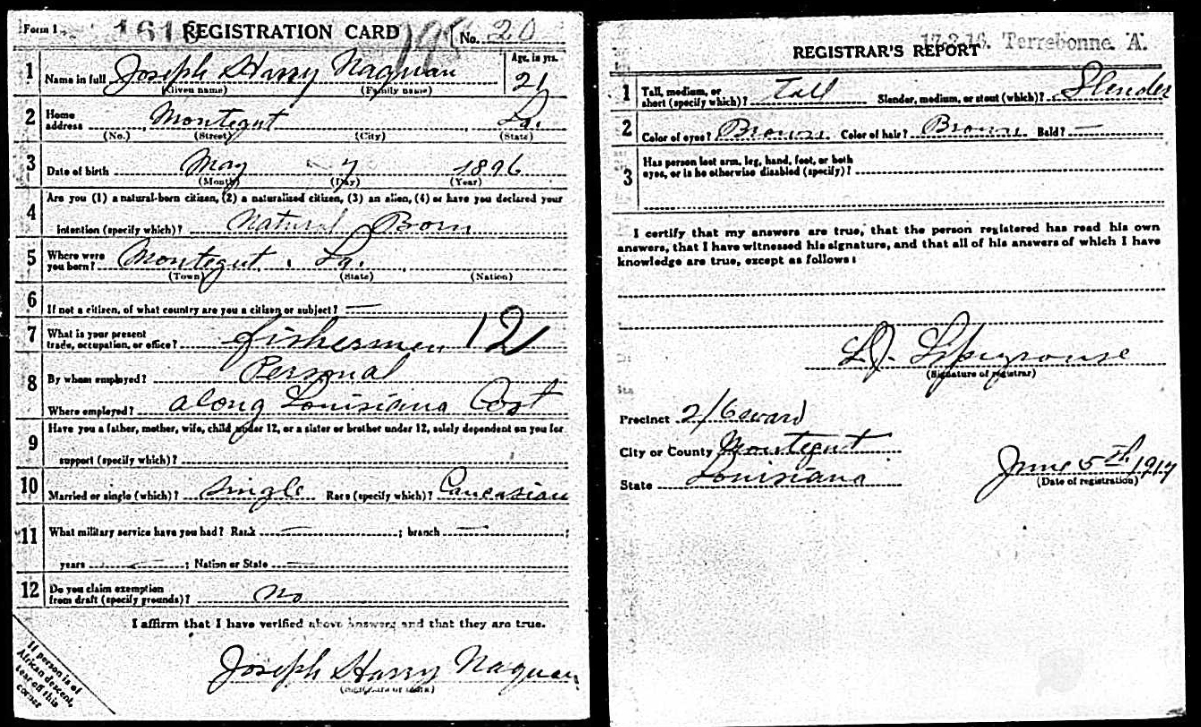 Form 1 1610 REGISTRATION CARD No. 20
1 Name in full Joseph Harry Naquan Age, in yrs. 21
(Given name) (Family name)
2 Home address Montegut La.
(No.) (Street) (City) (State)
3 Date of birth May 7 1896
(Month) (Day) (Year)
4 Are you (1) a natural-born citizen, (2) a naturalized citizen, (3) an alien, (4) or have you declared your
intention (specify which)? Natural Born
5 Where were you born? Montegut. La.
(Town) (State) (Nation)
6 If not a citizen, of what country are you a citizen or subject? —
7 What is your present trade, occupation, or office? fishermen 12
8 By whom employed? Personal
Where employed? along Louisiana Cost
9 Have you a father, mother, wife, child under 12, or a sister or brother under 12, solely dependent on you for
support (specify which)?
10 Married or single (which)? Single Race (specify which)? Caucasian
11 What military service have you had? Rank — ; branch — ;
years — ; Nation or State —
12 Do you claim exemption from draft (specify grounds)? No
I affirm that I have verified above answers and that they are true.
Joseph Harry Naquan
(Signature or mark)
If person is of
African descent,
tear off this
corner
17-3-16. Terrebonne. A.
REGISTRAR'S REPORT
1 Tall, medium, or short (specify which)? Tall Slender, medium, or stout (which)? Slender
2 Color of eyes? Brown Color of hair? Brown Bald? —
3 Has person lost arm, leg, hand, foot, or both
eyes, or is he otherwise disabled (specify)?
I certify that my answers are true, that the person registered has read his own
answers, that I have witnessed his signature, and that all of his answers of which I have
knowledge are true, except as follows:
(Signature of registrar)
Precinct 2/6 ward
City or County Montegut
State Louisiana
June 5th, 1917
(Date of registration)